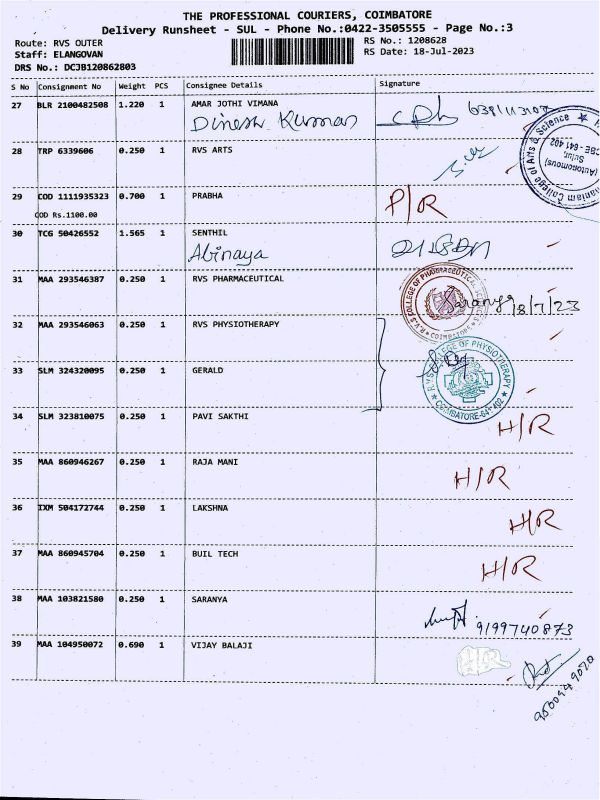 THE PROFESSIONAL COURIERS, COIMBATORE
Delivery Runsheet - SUL - Phone No.:0422-3505555 - Page No.:3
Route: RVS OUTER
RS No.: 1208628
Staff: ELANGOVAN
RS Date: 18-Jul-2023
DRS No.: DCJB120862803
S No Consignment No Weight PCS Consignee Details Signature
27 BLR 2100482508 1.220 1 AMAR JOTHI VIMANA
Dinesh Kumar
28 TRP 6339606 0.250 1 RVS ARTS
29 COD 1111935323 0.700 1 PRABHA P/R
COD Rs.1100.00
30 TCG 50426552 1.565 1 SENTHIL
Abinaya
31 MAA 293546387 0.250 1 RVS PHARMACEUTICAL
Saranya 18/7/23
32 MAA 293546063 0.250 1 RVS PHYSIOTHERAPY
R.V.S COLLEGE OF PHYSIOTHERAPY
COIMBATORE-641 402
33 SLM 324320095 0.250 1 GERALD
34 SLM 323810075 0.250 1 PAVI SAKTHI H/R
35 MAA 860946267 0.250 1 RAJA MANI H/R
36 IXM 504172744 0.250 1 LAKSHNA H/R
37 MAA 860945704 0.250 1 BUIL TECH H/R
38 MAA 103821580 0.250 1 SARANYA
9199740873
39 MAA 104950072 0.690 1 VIJAY BALAJI